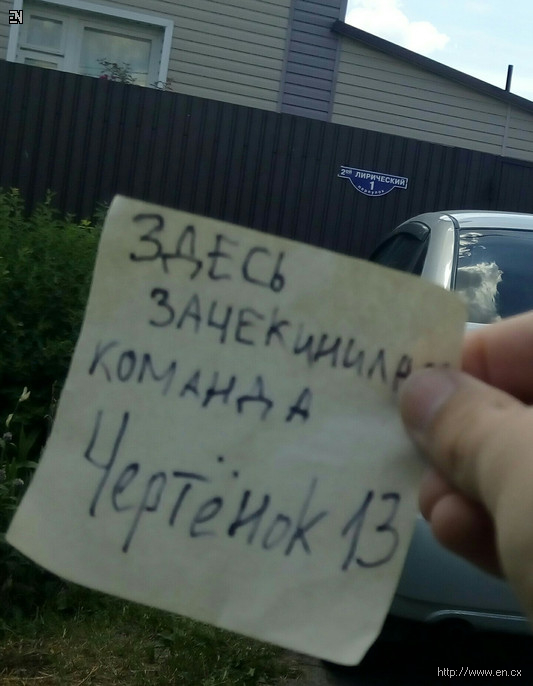 EN
2ой ЛИРИЧЕСКИЙ
1
переулок
ЗДЕСЬ
ЗАЧЕКИНИЛАСЬ
КОМАНДА
Чертёнок 13
http://www.en.cx